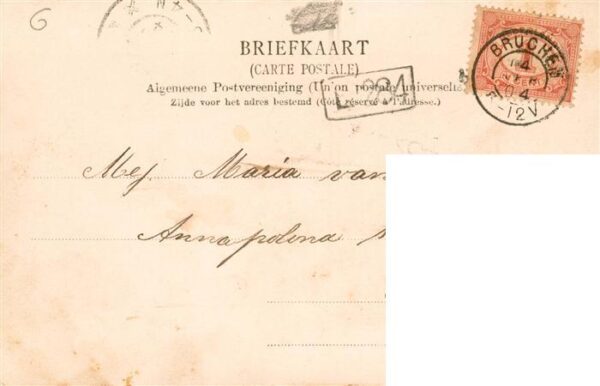 6
BRIEFKAART
(CARTE POSTALE)
Algemeene Postvereeniging (Union postale universelle
Zijde voor het adres bestemd (Côté réservé à l'adresse.)
BRUCHEM
4
04
-12V
Mej Maria van
Annapolona